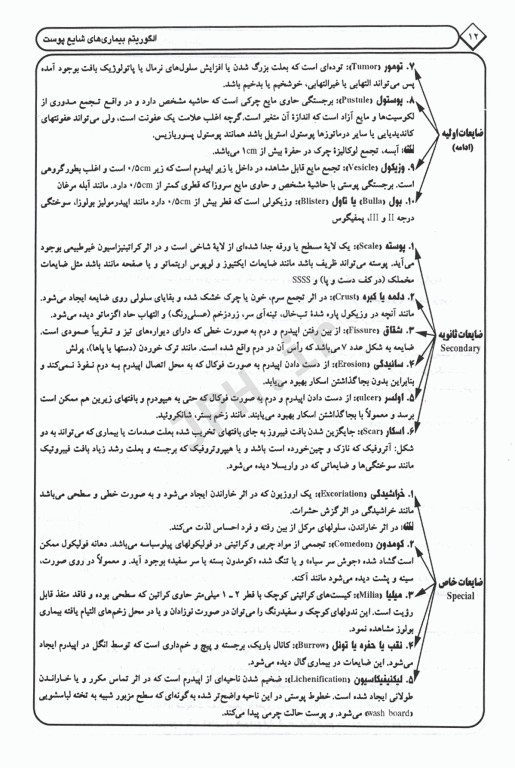 ۱۲
الگوریتم بیماری‌های شایع پوست
ضایعات اولیه
(ادامه)
۷. تومور (Tumor): توده‌ای است که بعلت بزرگ شدن یا افزایش سلول‌های نرمال یا پاتولوژیک بافت بوجود آمده
پس می‌تواند التهابی یا غیرالتهابی، خوشخیم یا بدخیم باشد.
۸. پوستول (Pustule): برجستگی حاوی مایع چرکی است که حاشیه مشخص دارد و در واقع تجمع مدوری از
لکوسیت‌ها و مایع آزاد است که اندازۀ آن متغیر است. گرچه اغلب علامت یک عفونت است، ولی می‌تواند عفونتهای
کاندیدیایی یا سایر درماتوزها پوستول استریل باشد همانند پوستول پسوریازیس.
آبسه، تجمع لوکالیزۀ چرک در حفرۀ بیش از ۱cm می‌باشد.
۹. وزیکول (Vesicle): تجمع مایع قابل مشاهده در داخل یا زیر اپیدرم است که زیر ۰/۵cm است و اغلب بطور گروهی
است. برجستگی پوستی با حاشیۀ مشخص و حاوی مایع سروزا که قطری کمتر از ۰/۵cm دارد. مانند آبله مرغان
۱۰. بول (Bulla) یا تاول (Blister): وزیکولی است که قطر بیش از ۰/۵cm دارد مانند اپیدرمولیز بولوزا، سوختگی
درجه II و III، پمفیگوس
ضایعات ثانویه
Secondary
۱. پوسته (Scale): یک لایۀ مسطح یا ورقه جدا شده‌ای از لایۀ شاخی است و در اثر کراتینیزاسیون غیرطبیعی بوجود
می‌آید. پوسته می‌تواند ظریف باشد مانند ضایعات ایکتیوز و لوپوس اریتماتو و یا صفحه مانند باشد مثل ضایعات
مخملک (در کف دست و پا) و SSSS
۲. دلمه یا کبره (Crust): در اثر تجمع سرم، خون یا چرک خشک شده و بقایای سلولی روی ضایعه ایجاد می‌شود.
مانند آنچه در وزیکول پاره شدۀ تب‌خال، تینه‌آی سر، زردزخم (عسلی‌رنگ) و التهاب حاد اگزماتو دیده می‌شود.
۳. شقاق (Fissure): از بین رفتن اپیدرم و درم به صورت خطی که دارای دیواره‌های تیز و تقریباً عمودی است.
ضایعه به شکل عدد ۷ می‌باشد که رأس آن در درم واقع شده است. مانند ترک خوردن (دستها یا پاها)، پرلش
۴. سائیدگی (Erosion): از دست دادن اپیدرم به صورت فوکال که به محل اتصال اپیدرم به درم نفوذ نمی‌کند و
بنابراین بدون بجا گذاشتن اسکار بهبود می‌یابد.
۵. اولسر (ulcer): از دست دادن اپیدرم و درم به صورت فوکال که حتی به هیپودرم و بافتهای زیرین هم ممکن است
برسد و معمولاً با بجا گذاشتن اسکار بهبود می‌یابند. مانند زخم بستر، شانکروئید.
۶. اسکار (Scar): جایگزین شدن بافت فیبروز به جای بافتهای تخریب شده بعلت صدمات یا بیماری که می‌تواند به دو
شکل: آتروفیک که نازک و چین‌خورده است باشد و یا هیپرتروفیک که برجسته و بعلت رشد زیاد بافت فیبروتیک
مانند سوختگی‌ها و ضایعاتی که در واریسلا دیده می‌شود.
ضایعات خاص
Special
۱. خراشیدگی (Excoriation): یک اروزیون که در اثر خاراندن ایجاد می‌شود و به صورت خطی و سطحی می‌باشد
مانند خراشیدگی در اثر گزش حشرات.
در اثر خاراندن، سلولهای مرکل از بین رفته و فرد احساس لذت می‌کند.
۲. کومدون (Comedon): تجمعی از مواد چربی و کراتینی در فولیکولهای پیلوسباسه می‌باشد. دهانه فولیکول ممکن
است گشاد شده «جوش سر سیاه» و یا تنگ شده «کومدون بسته یا سر سفید» بوجود آید. و معمولاً در روی صورت،
سینه و پشت دیده می‌شود مانند آکنه.
۳. میلیا (Milia): کیست‌های کراتینی کوچک با قطر ۲ - ۱ میلی‌متر حاوی کراتین که سطحی بوده و فاقد منفذ قابل
رؤیت است. این ندولهای کوچک و سفیدرنگ را می‌توان در صورت نوزادان و یا در محل زخم‌های التیام یافته بیماری
بولوز مشاهده نمود.
۴. نقب یا حفره یا تونل (Burrow): کانال باریک، برجسته و پیچ و خم‌داری است که توسط انگل در اپیدرم ایجاد
می‌شود. این ضایعات در بیماری گال دیده می‌شود.
۵. لیکنیفیکاسیون (Lichenification): ضخیم شدن ناحیه‌ای از اپیدرم است که در اثر تماس مکرر و یا خاراندن
طولانی ایجاد شده است. خطوط پوستی در این ناحیه واضح‌تر شده به گونه‌ای که سطح مزبور شبیه به تخته لباسشویی
(wash board) می‌شود. و پوست حالت چرمی پیدا می‌کند.